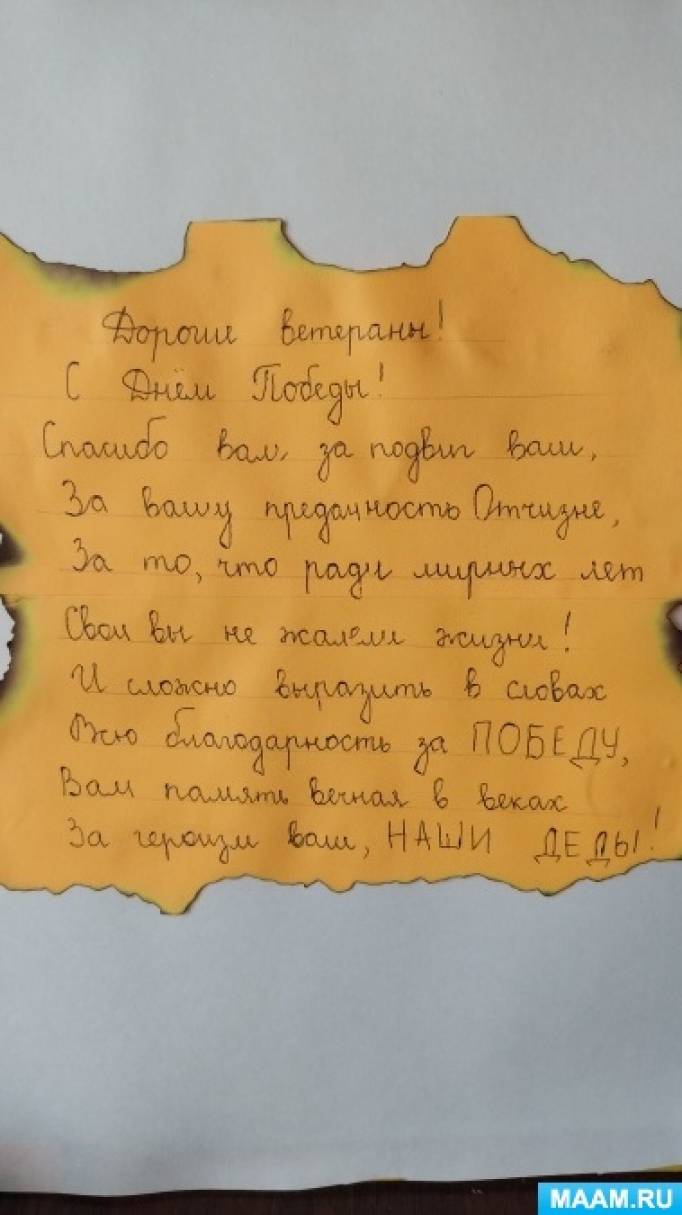 Дорогие ветераны!
С Днём Победы!
Спасибо вам, за подвиг ваш,
За вашу преданность Отчизне,
За то, что ради мирных лет
Свои вы не жалели жизни!
И сложно выразить в словах
Всю благодарность за ПОБЕДУ,
Вам память вечная в веках
За героизм ваш, НАШИ ДЕДЫ!
MAAM.RU